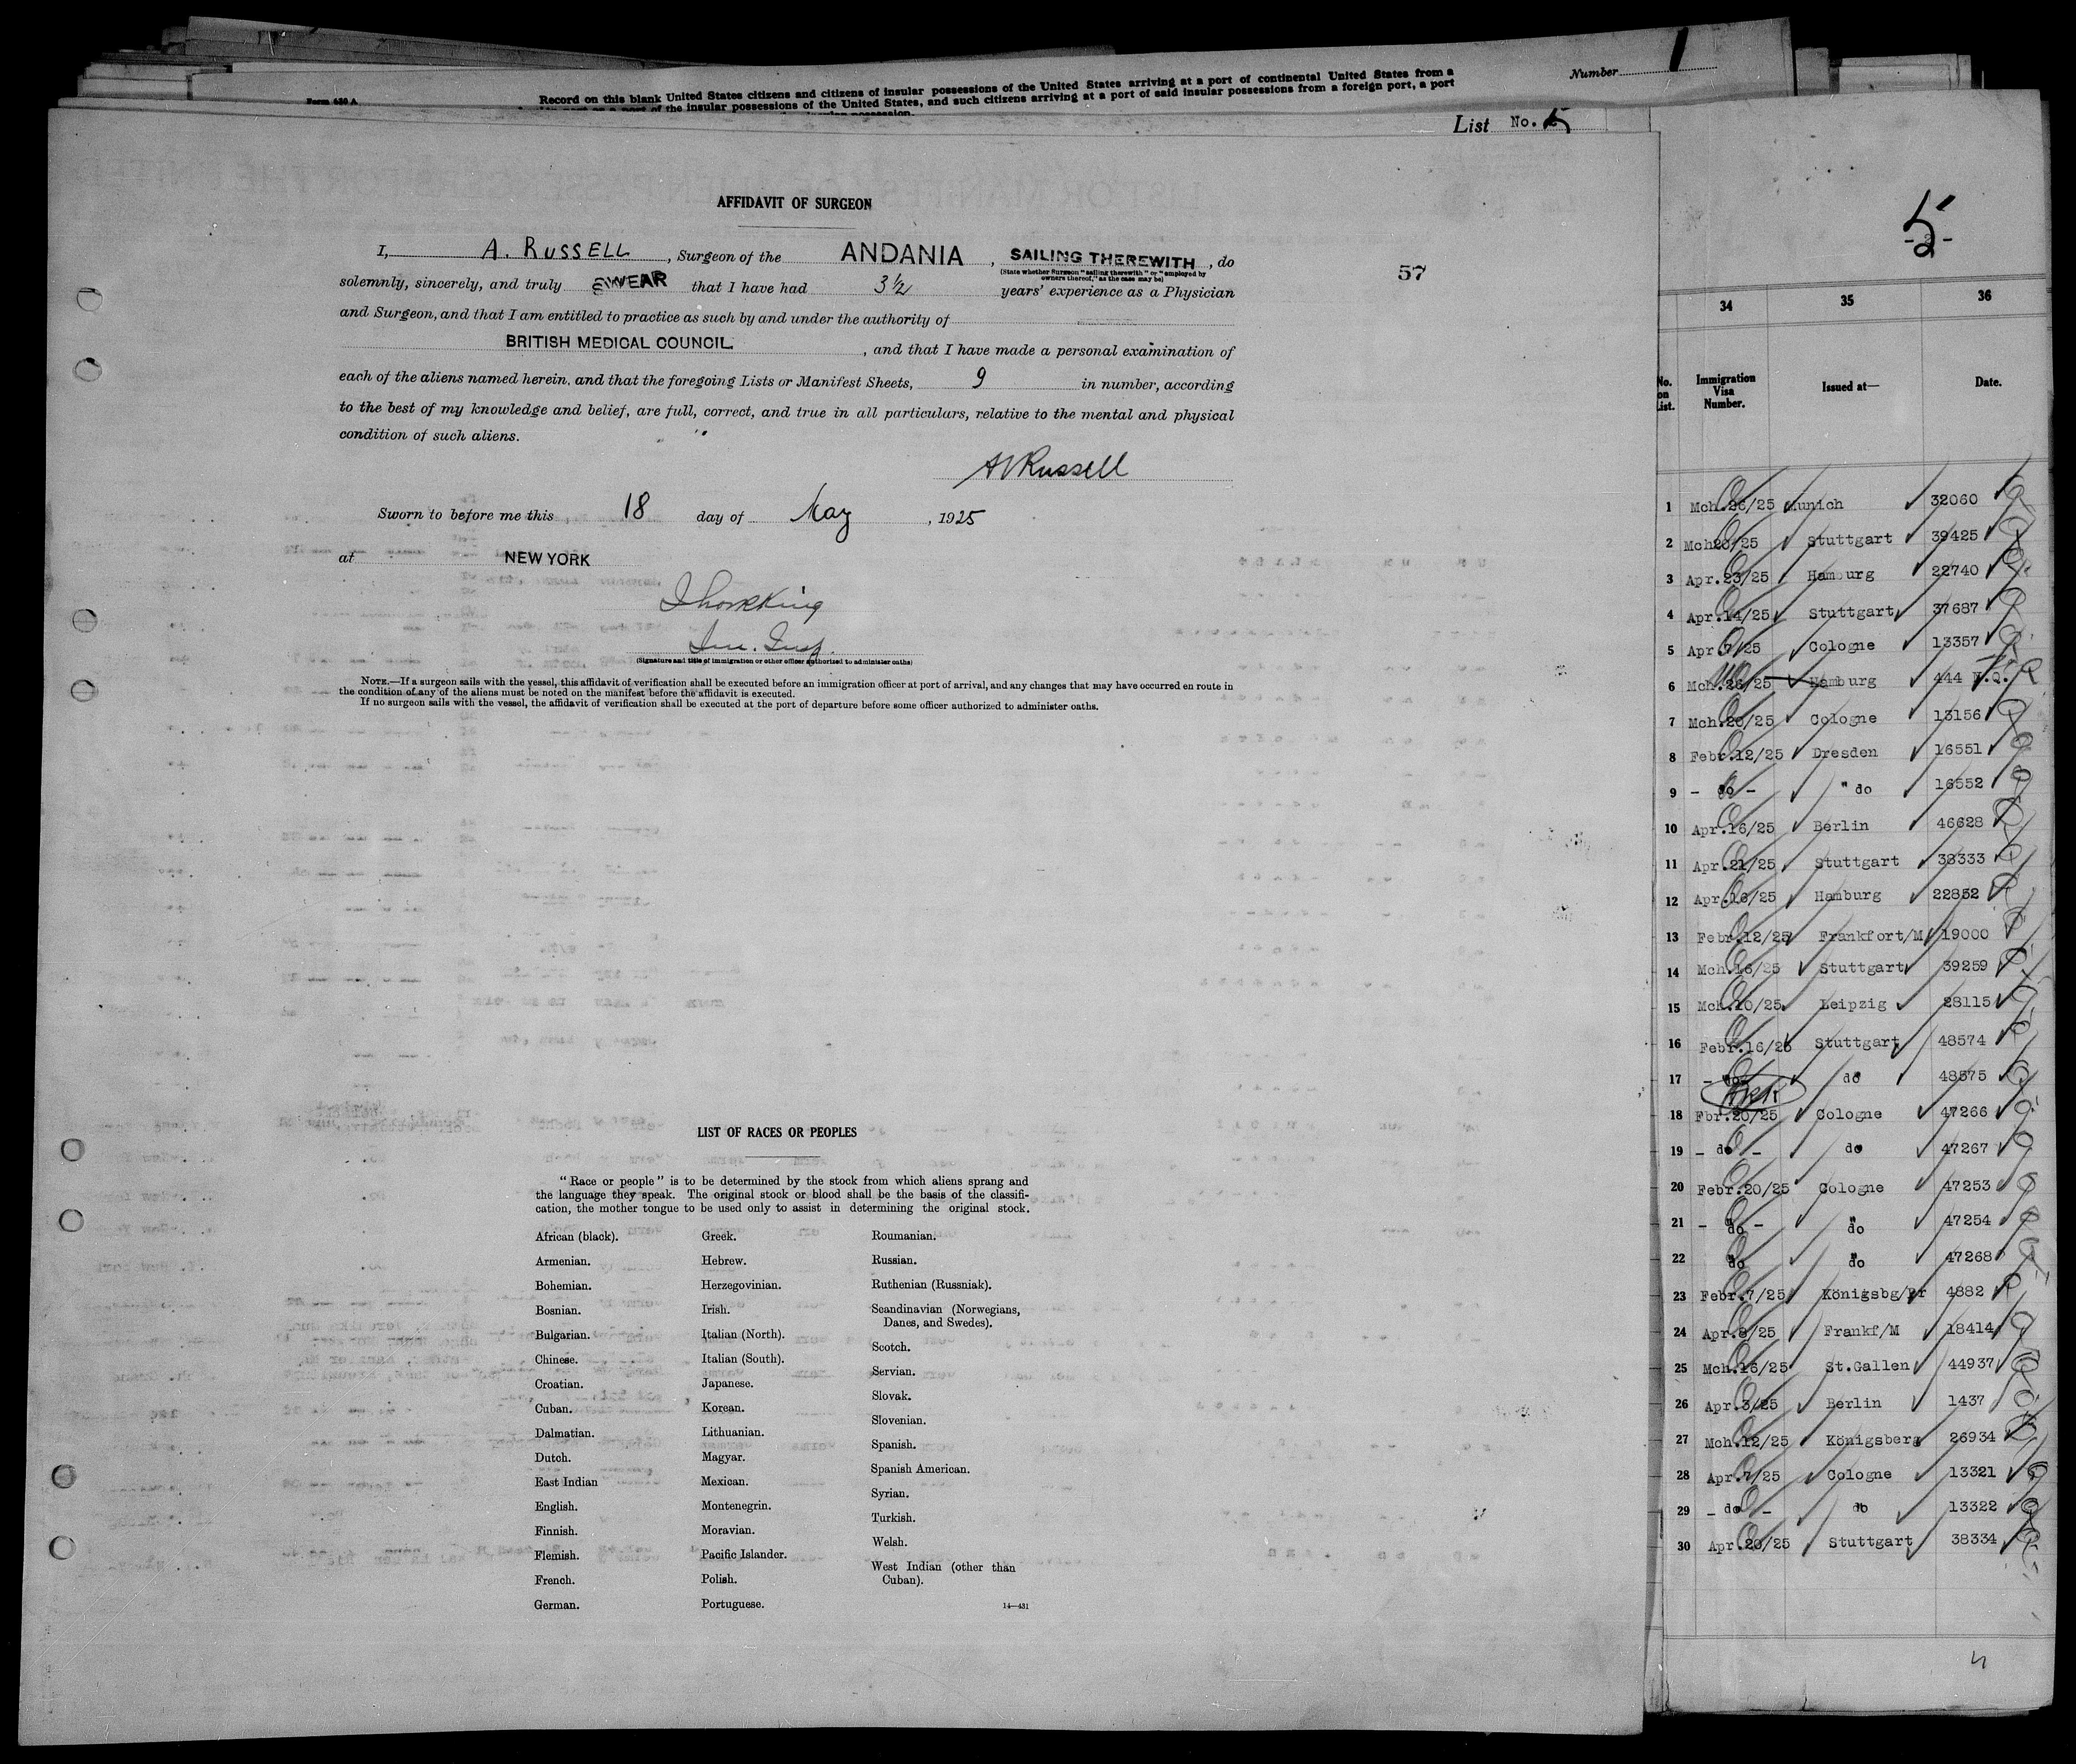 Number 1
Form 630 A
Record on this blank United States citizens and citizens of insular possessions of the United States arriving at a port of continental United States from a
of the insular possessions of the United States, and such citizens arriving at a port of said insular possessions from a foreign port, a port
insular possession.
List No. 5
AFFIDAVIT OF SURGEON
I, A. RUSSELL, Surgeon of the ANDANIA, SAILING THEREWITH, do
(State whether Surgeon "sailing therewith" or "employed by
owners thereof," as the case may be)
57
solemnly, sincerely, and truly SWEAR that I have had 3½ years' experience as a Physician
and Surgeon, and that I am entitled to practice as such by and under the authority of
BRITISH MEDICAL COUNCIL, and that I have made a personal examination of
each of the aliens named herein, and that the foregoing Lists or Manifest Sheets, 9 in number, according
to the best of my knowledge and belief, are full, correct, and true in all particulars, relative to the mental and physical
condition of such aliens.
Russell
Sworn to before me this 18 day of May, 1925
at NEW YORK
Imm. Insp.
(Signature and title of immigration or other officer authorized to administer oaths)
NOTE.—If a surgeon sails with the vessel, this affidavit of verification shall be executed before an immigration officer at port of arrival, and any changes that may have occurred en route in
the condition of any of the aliens must be noted on the manifest before the affidavit is executed.
If no surgeon sails with the vessel, the affidavit of verification shall be executed at the port of departure before some officer authorized to administer oaths.
LIST OF RACES OR PEOPLES
"Race or people" is to be determined by the stock from which aliens sprang and
the language they speak. The original stock or blood shall be the basis of the classifi-
cation, the mother tongue to be used only to assist in determining the original stock.
African (black).
Armenian.
Bohemian.
Bosnian.
Bulgarian.
Chinese.
Croatian.
Cuban.
Dalmatian.
Dutch.
East Indian
English.
Finnish.
Flemish.
French.
German.
Greek.
Hebrew.
Herzegovinian.
Irish.
Italian (North).
Italian (South).
Japanese.
Korean.
Lithuanian.
Magyar.
Mexican.
Montenegrin.
Moravian.
Pacific Islander.
Polish.
Portuguese.
Roumanian.
Russian.
Ruthenian (Russniak).
Scandinavian (Norwegians,
Danes, and Swedes).
Scotch.
Servian.
Slovak.
Slovenian.
Spanish.
Spanish American.
Syrian.
Turkish.
Welsh.
West Indian (other than
Cuban).
14—431
5
34 35 36
No. on List. Immigration Visa Number. Issued at— Date.
1 Mch.26/25 Munich 32060
2 Mch20/25 Stuttgart 39425
3 Apr.23/25 Hamburg 22740
4 Apr.14/25 Stuttgart 37687
5 Apr.7/25 Cologne 13357
6 Mch.26/25 Hamburg 444 N.Q.
7 Mch.20/25 Cologne 13156
8 Febr.12/25 Dresden 16551
9 - do - " do 16552
10 Apr.16/25 Berlin 46628
11 Apr.21/25 Stuttgart 38333
12 Apr.16/25 Hamburg 22852
13 Febr.12/25 Frankfort/M 19000
14 Mch.16/25 Stuttgart 39259
15 Mch.10/25 Leipzig 28115
16 Febr.16/25 Stuttgart 48574
17 - do- do 48575
18 Fbr.20/25 Cologne 47266
19 - do - do 47267
20 Febr.20/25 Cologne 47253
21 - do - " do 47254
22 do " do 47268
23 Febr.7/25 Königsbg/Pr 4882
24 Apr.8/25 Frankf/M 18414
25 Mch.16/25 St.Gallen 44937
26 Apr.3/25 Berlin 1437
27 Mch.12/25 Königsberg 26934
28 Apr.7/25 Cologne 13321
29 - do - do 13322
30 Apr.20/25 Stuttgart 38334